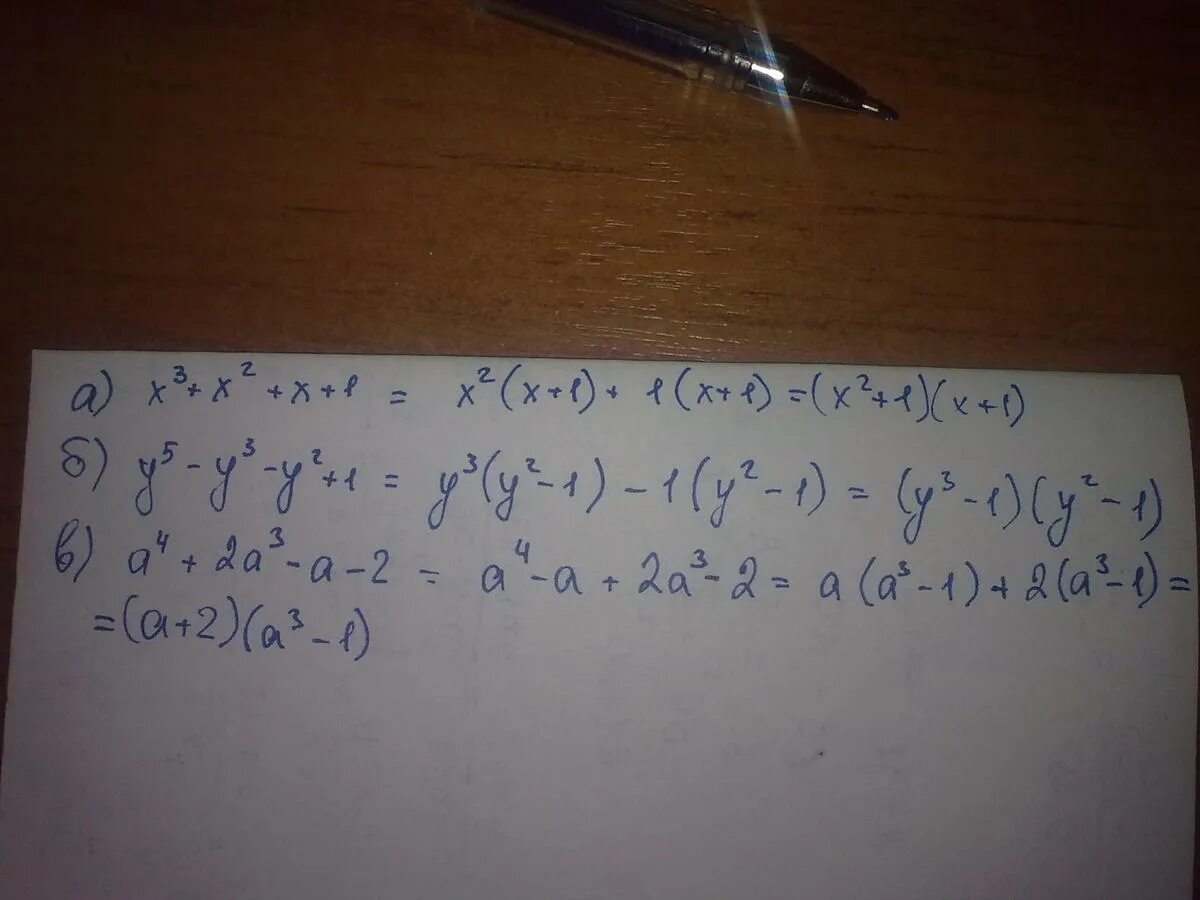 а) x³ + x² + x + 1 = x²(x+1) + 1(x+1) = (x²+1)(x+1)
б) y⁵ - y³ - y² + 1 = y³(y² - 1) - 1(y² - 1) = (y³ - 1)(y² - 1)
в) a⁴ + 2a³ - a - 2 = a⁴ - a + 2a³ - 2 = a(a³ - 1) + 2(a³ - 1) =
= (a+2)(a³ - 1)